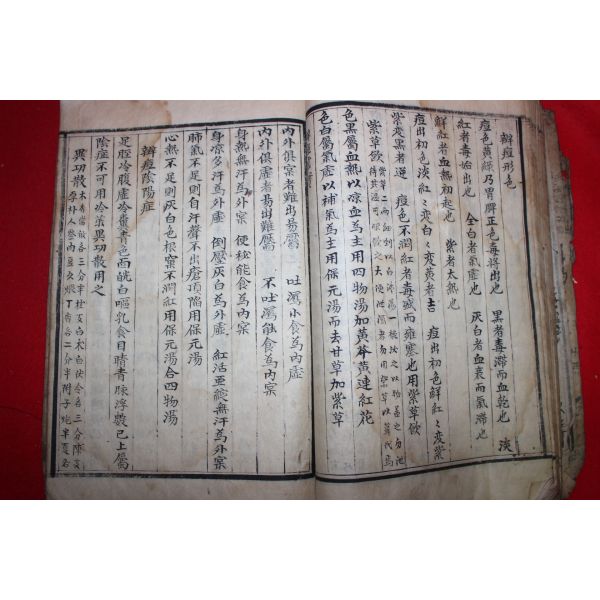 辨痘形色
痘色黃綠乃胃脾正色毒將出也 黑者毒滯而血乾也 淡
紅者毒始出也 全白者氣虛也 灰白者血衰而氣滯也
鮮紅者血熱初起也 紫者太熱也
痘出初色淡紅々變白々變黃者吉 痘出初色鮮紅々變紫
紫變黑者逆 痘色不潤紅者毒盛而雍寒也用紫草飮
紫草飮 紫草二兩細剉以白沸湯一椀沃之以物盖之勿泄
色黑屬血熱以凉血爲主用四物湯加黃芩黃連紅花
色白屬氣虛以補氣爲主用保元湯而去甘草加紫草
內外俱實者難出易靨 吐瀉小食爲內虛
內外俱虛者易出難靨 不吐瀉能食爲內實
身熱無汗爲外實 便秘能食爲內實
身凉多汗爲外虛 倒靨灰白爲外虛 紅活無汗爲外實
肺氣不足則自汗聲不出瘡頂陷用保元湯
心熱不足則灰白色根窠不潤紅用保元湯合四物湯
辨痘陰陽症
足脛冷腹虛冷糞靑色面晄白嘔乳食目睛靑脉浮數已上屬
陰症不可用冷藥異功散用之
異功散